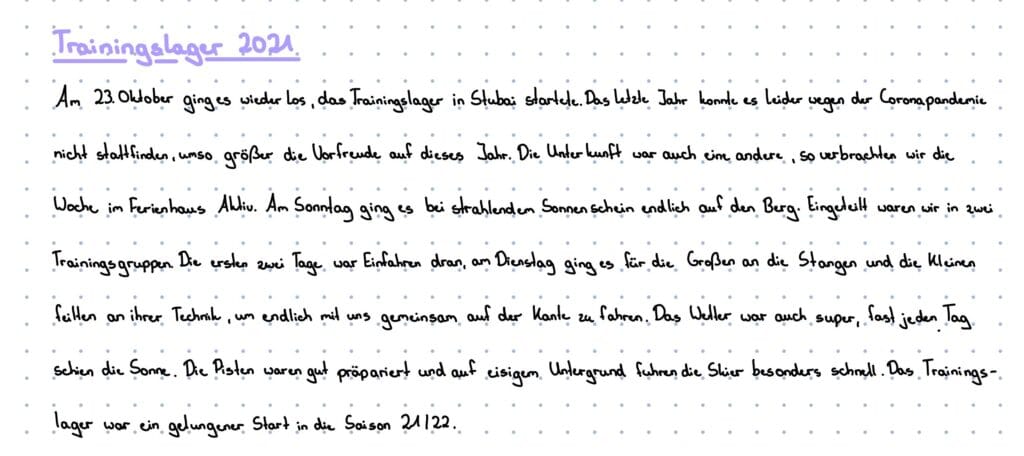 Trainingslager 2021
Am 23. Oktober ging es wieder los, das Trainingslager in Stubai startete. Das letzte Jahr konnte es leider wegen der Coronapandemie
nicht stattfinden, umso größer die Vorfreude auf dieses Jahr. Die Unterkunft war auch eine andere, so verbrachten wir die
Woche im Ferienhaus Aktiv. Am Sonntag ging es bei strahlendem Sonnenschein endlich auf den Berg. Eingeteilt waren wir in zwei
Trainingsgruppen. Die ersten zwei Tage war Einfahren dran, am Dienstag ging es für die Großen an die Stangen und die Kleinen
feilten an ihrer Technik, um endlich mit uns gemeinsam auf der Kante zu fahren. Das Wetter war auch super, fast jeden Tag
schien die Sonne. Die Pisten waren gut präpariert und auf eisigem Untergrund fuhren die Skier besonders schnell. Das Trainings-
lager war ein gelungener Start in die Saison 21/22.